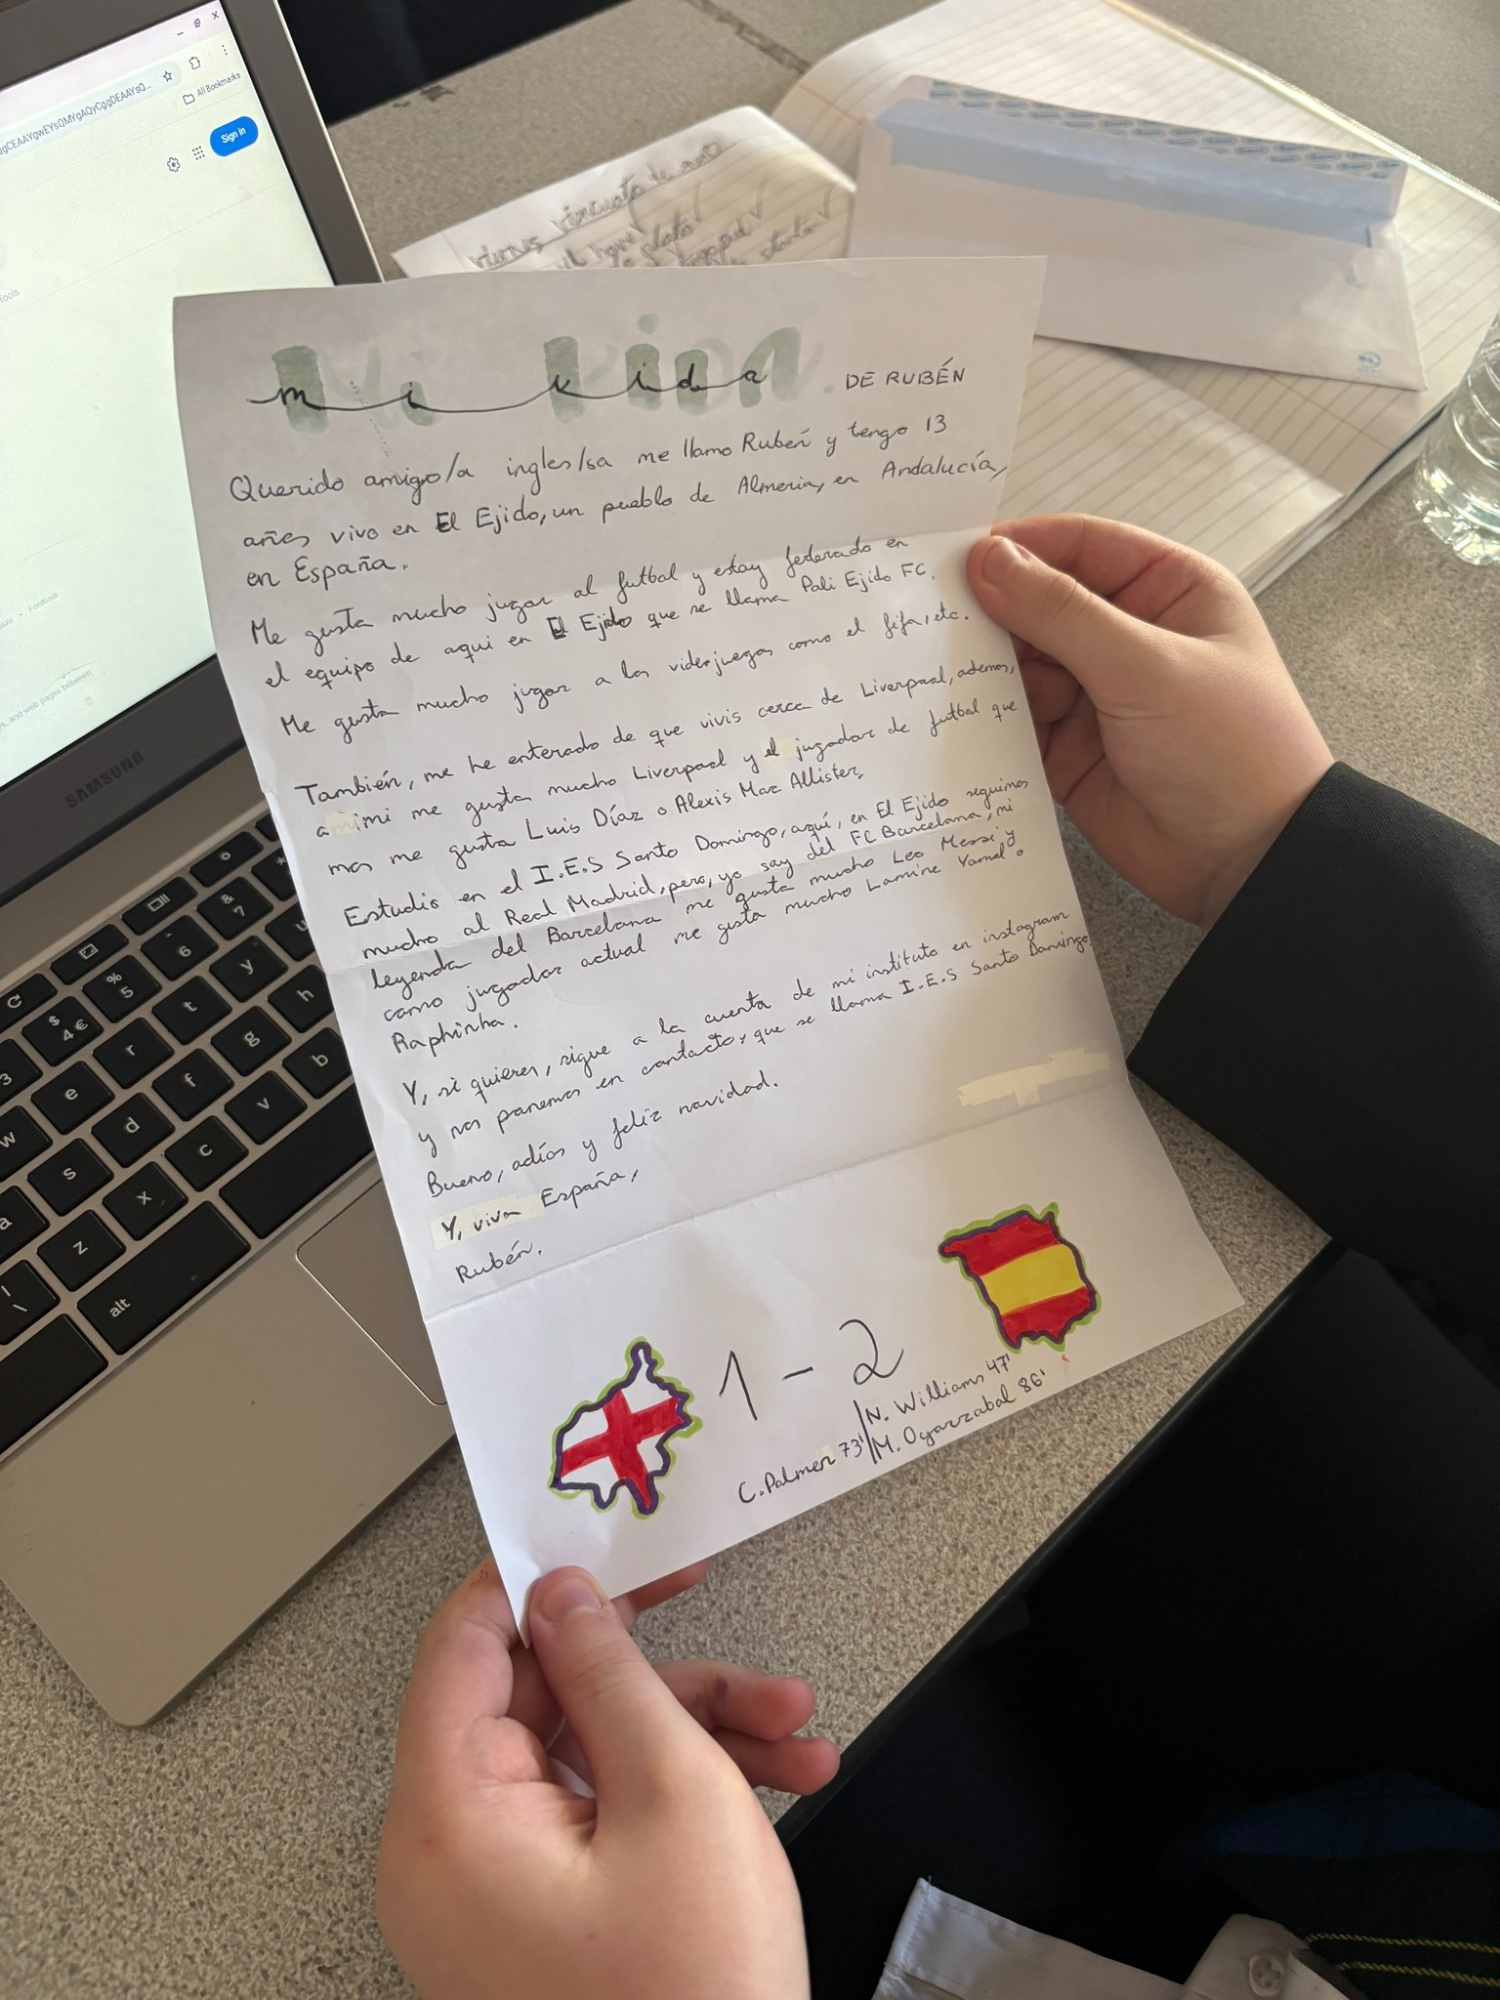 mi vida DE RUBÉN
Querido amigo/a ingles/sa me llamo Rubén y tengo 13
años vivo en El Ejido, un pueblo de Almeria, en Andalucía,
en España.
Me gusta mucho jugar al futbol y estoy federado en
el equipo de aqui en El Ejido que se llama Poli Ejido FC.
Me gusta mucho jugar a los viderjuegos como el fifa, etc.
También, me he enterado de que vivis cerca de Liverpool, ademas,
a mimi me gusta mucho Liverpool y el jugador de futbol que
mas me gusta Luis Díaz o Alexis Mac Allister,
Estudio en el I.E.S Santo Domingo, aquí, en El Ejido seguimos
mucho al Real Madrid, pero, yo soy del FC Barcelona, mi
leyenda del Barcelona me gusta mucho Leo Messi y
como jugador actual me gusta mucho Lamine Yamal o
Raphinha.
Y, si quieres, sigue a la cuenta de mi instituto en instagram
y nos ponemos en contacto, que se llama I.E.S Santo Domingo
Bueno, adíos y feliz navidad.
Y, viva España,
Rubén.
1 - 2
N. Williams 47'
C. Palmer 73' M. Oyarzabal 86'
SAMSUNG
All Bookmarks
Sign in
Tools
Feedback
, and web pages between
alt